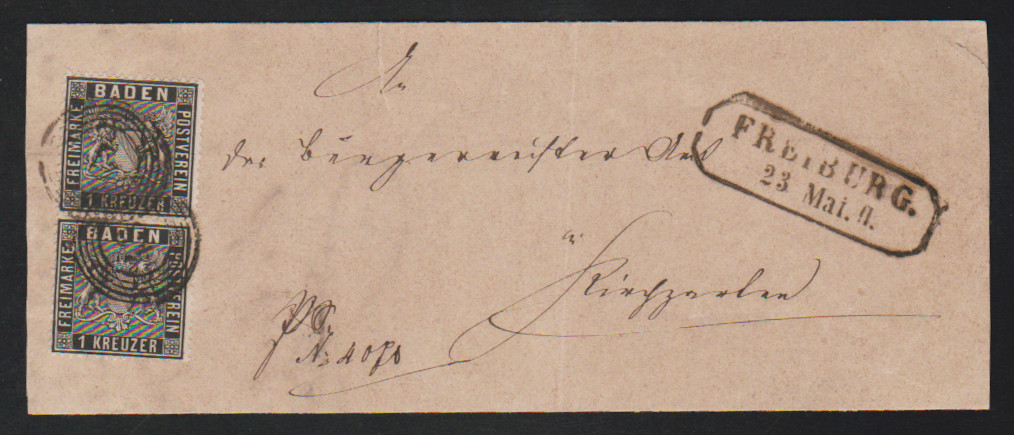 BADEN
FREIMARKE
POSTVEREIN
1 KREUZER
BADEN
FREIMARKE
POSTVEREIN
1 KREUZER
FREIBURG.
23 Mai.
An
das Bürgermeister Amt
in
Kirchzarten